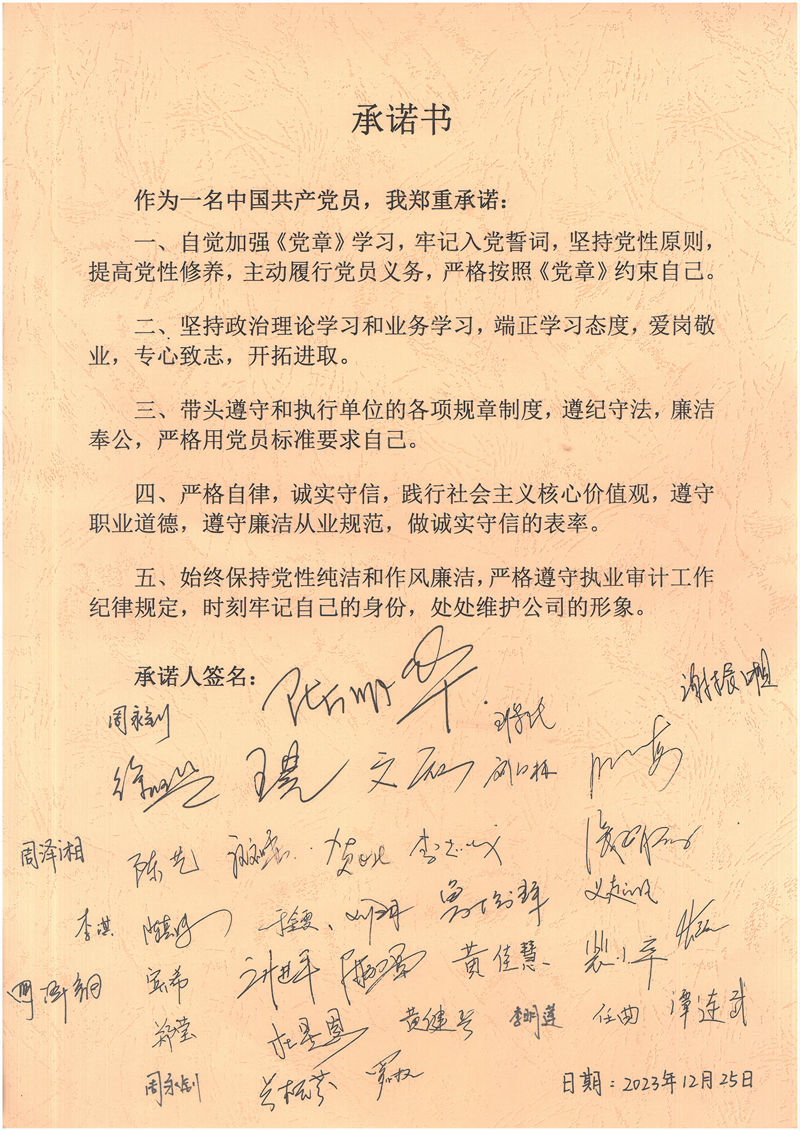 承诺书
作为一名中国共产党员，我郑重承诺：
一、自觉加强《党章》学习，牢记入党誓词，坚持党性原则，
提高党性修养，主动履行党员义务，严格按照《党章》约束自己。
二、坚持政治理论学习和业务学习，端正学习态度，爱岗敬
业，专心致志，开拓进取。
三、带头遵守和执行单位的各项规章制度，遵纪守法，廉洁
奉公，严格用党员标准要求自己。
四、严格自律，诚实守信，践行社会主义核心价值观，遵守
职业道德，遵守廉洁从业规范，做诚实守信的表率。
五、始终保持党性纯洁和作风廉洁，严格遵守执业审计工作
纪律规定，时刻牢记自己的身份，处处维护公司的形象。
承诺人签名：
周永钊
周泽湘 陈艺
李淇
黄佳慧
郑莹 黄健 李明莲 任曲 谭连武
周永钊
日期：2023年12月25日